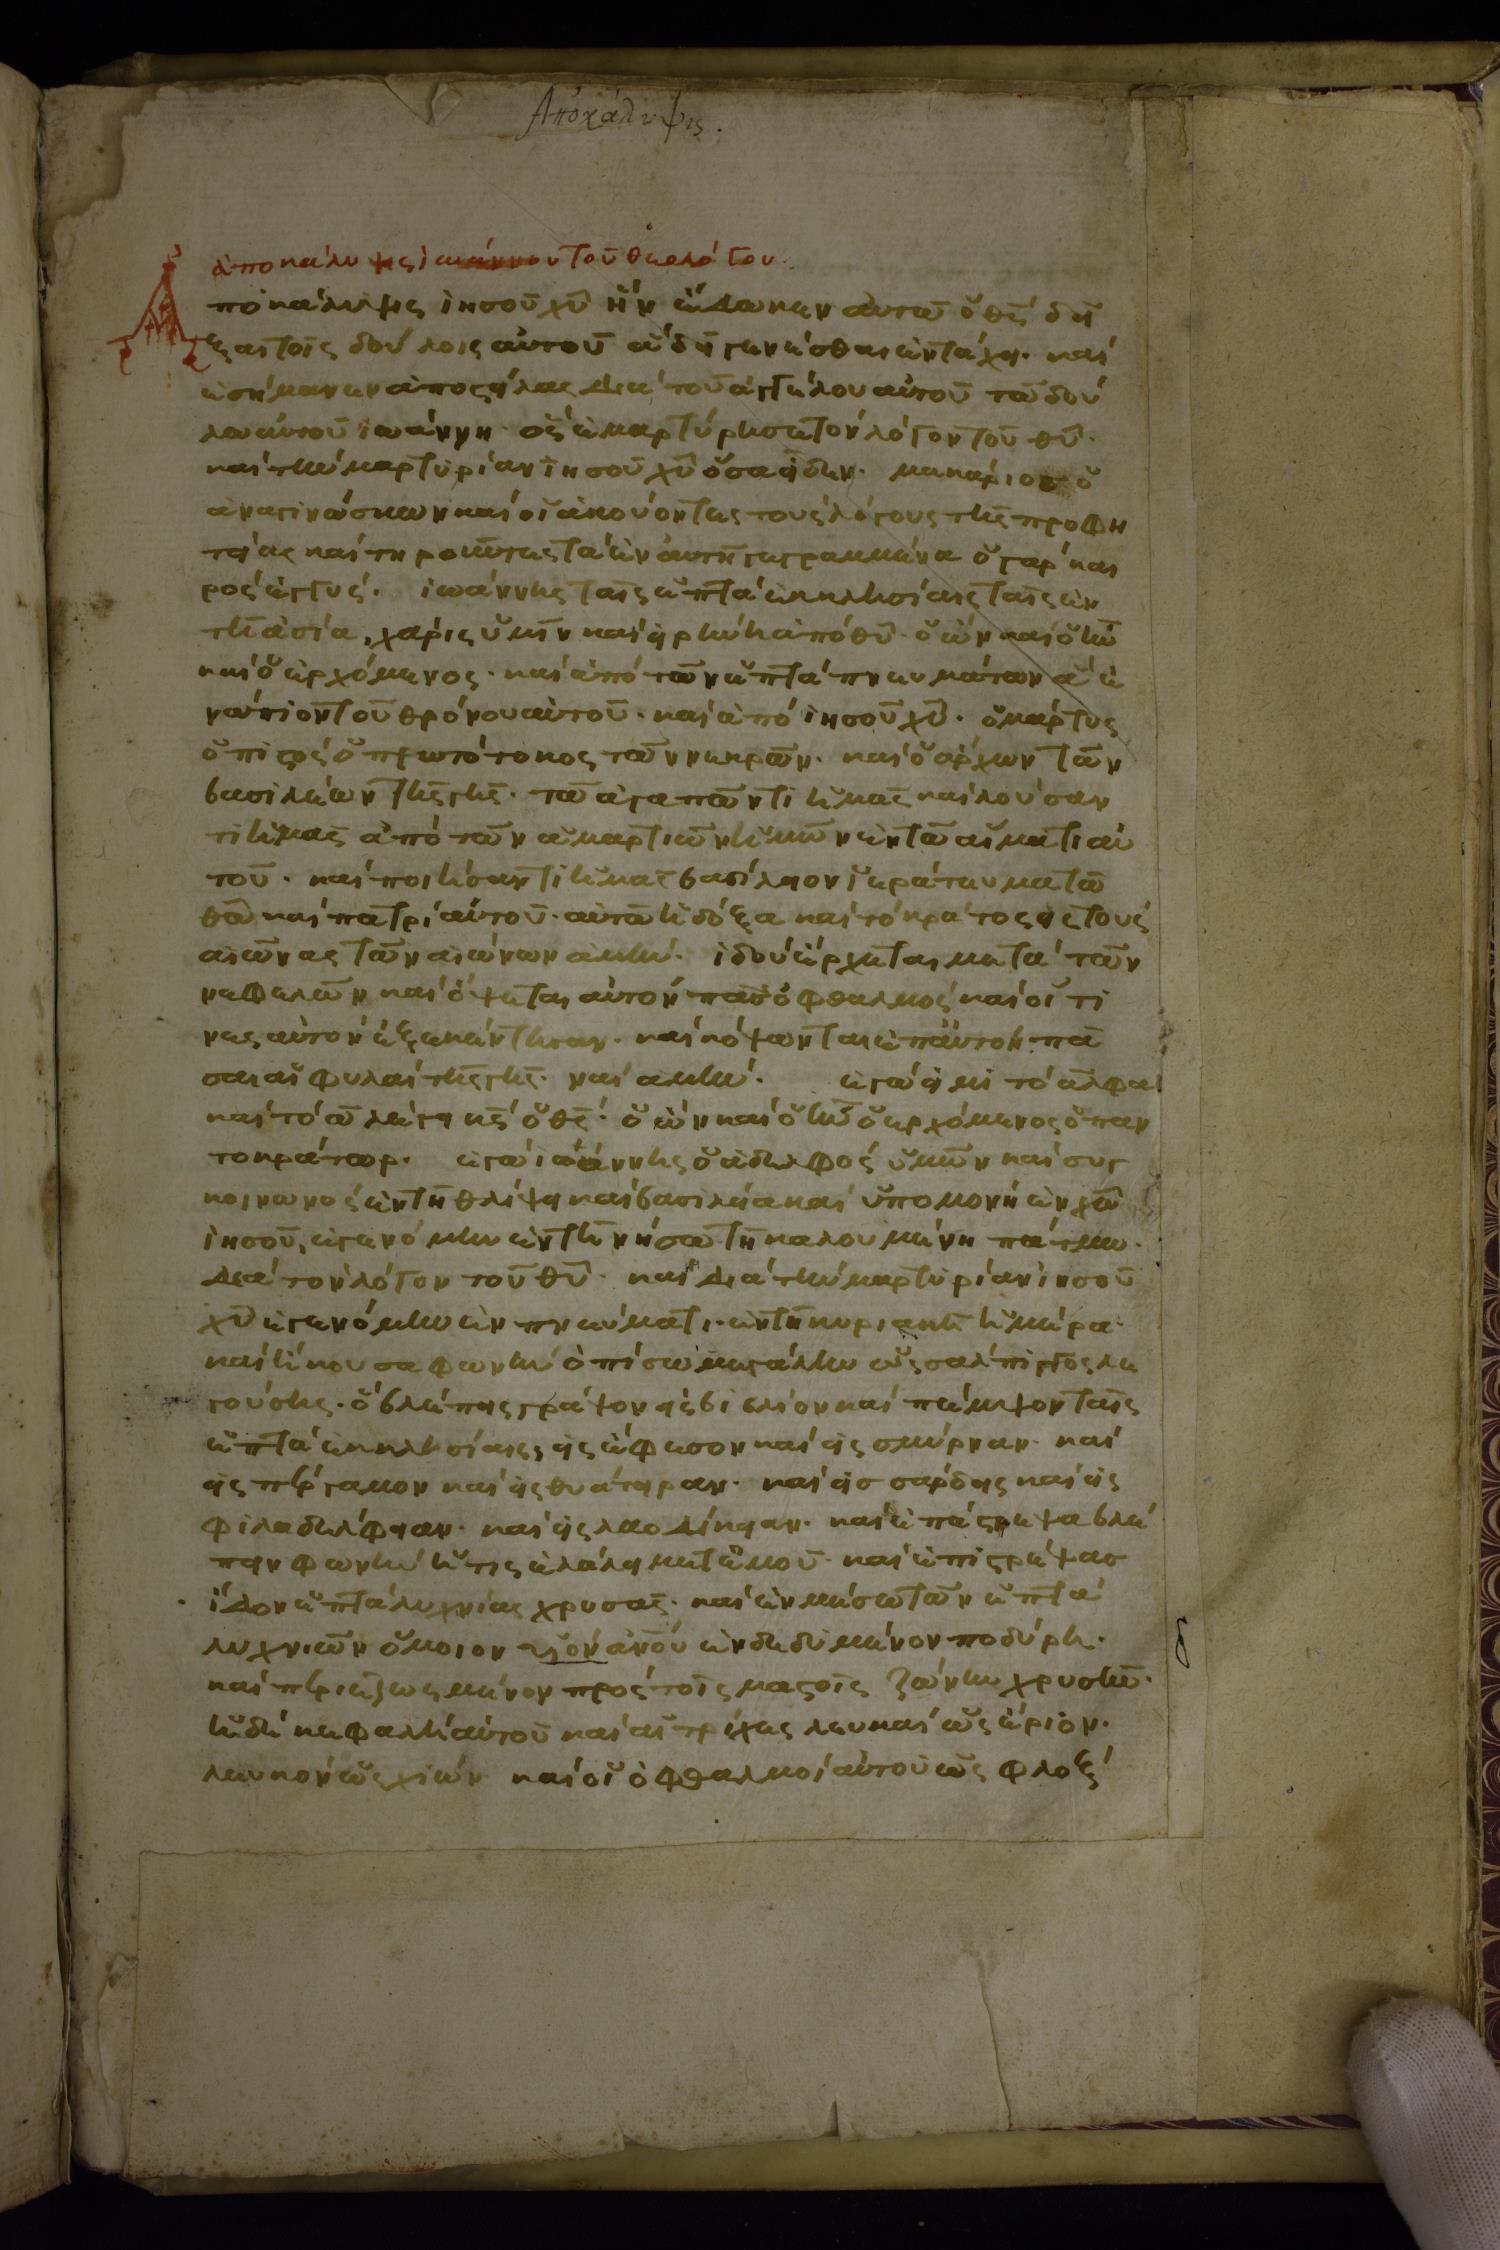 Ἀποκάλυψις.
ἀποκάλυψις ἰωάννου τοῦ θεολόγου.
Ἀποκάλυψις ἰησοῦ χῦ ἣν ἔδωκεν αὐτῶ ὁ θς δεῖ
ξαι τοῖς δούλοις αὐτοῦ ἃ δεῖ γενέσθαι ἐν τάχει. καὶ
ἐσήμανεν ἀποστείλας διὰ τοῦ ἀγγέλου αὐτοῦ τῶ δού
λω αὐτοῦ ἰωάννη. ὃς ἐμαρτύρησε τὸν λόγον τοῦ θῦ.
καὶ τὴν μαρτυρίαν ἰησοῦ χῦ ὅσα εἶδεν. μακάριος ὁ
ἀναγινώσκων καὶ οἱ ἀκούοντες τοὺς λόγους τῆς προφη
τείας καὶ τηροῦντες τὰ ἐν αὐτῆ γεγραμμένα ὁ γὰρ και
ρὸς ἐγγύς. ἰωάννης ταῖς ἑπτὰ ἐκκλησίαις ταῖς ἐν
τῆ ἀσία, χάρις ὑμῖν καὶ εἰρήνη ἀπὸ θῦ. ὁ ὢν καὶ ὁ ἦν
καὶ ὁ ἐρχόμενος. καὶ ἀπὸ τῶν ἑπτὰ πνευμάτων ἃ ἐ
νώπιον τοῦ θρόνου αὐτοῦ. καὶ ἀπὸ ἰησοῦ χῦ. ὁ μάρτυς
ὁ πιστὸς ὁ πρωτότοκος τῶν νεκρῶν. καὶ ὁ ἄρχων τῶν
βασιλέων τῆς γῆς. τῶ ἀγαπῶντι ἡμᾶς καὶ λούσαν
τι ἡμᾶς ἀπὸ τῶν ἁμαρτιῶν ἡμῶν ἐν τῶ αἵματι αὐ
τοῦ. καὶ ποιήσαντι ἡμᾶς βασίλειον ἱεράτευμα τῶ
θῶ καὶ πατρὶ αὐτοῦ. αὐτῶ ἡ δόξα καὶ τὸ κράτος εἰς τοὺς
αἰῶνας τῶν αἰώνων ἀμήν. ἰδοὺ ἔρχεται μετὰ τῶν
νεφελῶν καὶ ὄψεται αὐτὸν πᾶς ὀφθαλμὸς καὶ οἵ τι
νες αὐτὸν ἐξεκέντησαν. καὶ κόψωνται ἐπ' αὐτὸν πᾶ
σαι αἱ φυλαὶ τῆς γῆς. ναὶ ἀμήν. ἐγώ εἰμι τὸ ἄλφα
καὶ τὸ ω λέγει κς ὁ θς. ὁ ὢν καὶ ὁ ἦν ὁ ἐρχόμενος ὁ παν
τοκράτωρ. ἐγὼ ἰωάννης ὁ ἀδελφὸς ὑμῶν καὶ συγ
κοινωνὸς ἐν τῆ θλίψει καὶ βασιλεία καὶ ὑπομονὴ ἐν χῶ
ἰησοῦ, ἐγενόμην ἐν τῆ νήσω τῆ καλουμένη πάτμω.
διὰ τὸν λόγον τοῦ θῦ. καὶ διὰ τὴν μαρτυρίαν ἰησοῦ
χῦ ἐγενόμην ἐν πνεύματι. ἐν τῆ κυριακῆ ἡμέρα.
καὶ ἤκουσα φωνὴν ὀπίσω μεγάλην ὡς σάλπιγγος λε
γούσης. ὃ βλέπεις γράψον εἰς βιβλίον καὶ πέμψον ταῖς
ἑπτὰ ἐκκλησίαις, εἰς ἔφεσον καὶ εἰς σμύρναν. καὶ
εἰς πέργαμον καὶ εἰς θυάτειραν. καὶ εἰσ σάρδεις καὶ εἰς
φιλαδέλφειαν. καὶ εἰς λαοδίκειαν. καὶ ἐπέστρεψα βλέ
πειν φωνὴν ἥτις ἐλάλει μετ' ἐμοῦ. καὶ ἐπιστρέψασ
ἴδον ἑπτὰ λυχνίας χρυσᾶς. καὶ ἐν μέσω τῶν ἑπτὰ
λυχνιῶν ὅμοιον υἱὸν ἀνου ἐνδεδυμένον ποδύρη.
καὶ περιεζωσμένον πρὸς τοῖς μαστοῖς ζώνην χρυσῆν.
ἡ δὲ κεφαλὴ αὐτοῦ καὶ αἱ τρίχες λευκαὶ ὡς ἔριον.
λευκὸν ὡς χιὼν καὶ οἱ ὀφθαλμοὶ αὐτοῦ ὡς φλὸξ